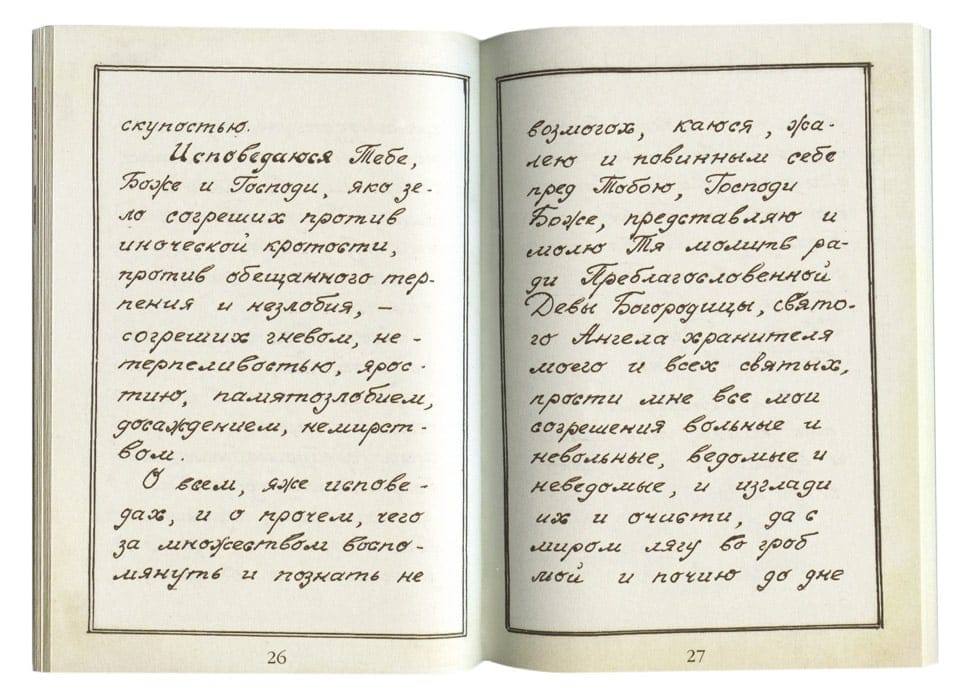 скупостью.
Исповедаюся Тебе,
Боже и Господи, яко зе-
ло согреших против
иноческой кротости,
против обещанного тер-
пения и незлобия, –
согреших гневом, не-
терпеливостью, ярос-
тию, памятозлобием,
досаждением, немирст-
вом.
О всем, яже испове-
дах, и о прочем, чего
за множеством воспо-
мянуть и познать не
26
возмогох, каюся, жа-
лею и повинным себе
пред Тобою, Господи
Боже, представляю и
молю Тя молитв ра-
ди Преблагословенной
Девы Богородицы, свято-
го Ангела хранителя
моего и всех святых,
прости мне все мои
согрешения вольные и
невольные, ведомые и
неведомые, и изглади
их и очисти, да с
миром лягу во гроб
мой и почию до дне
27